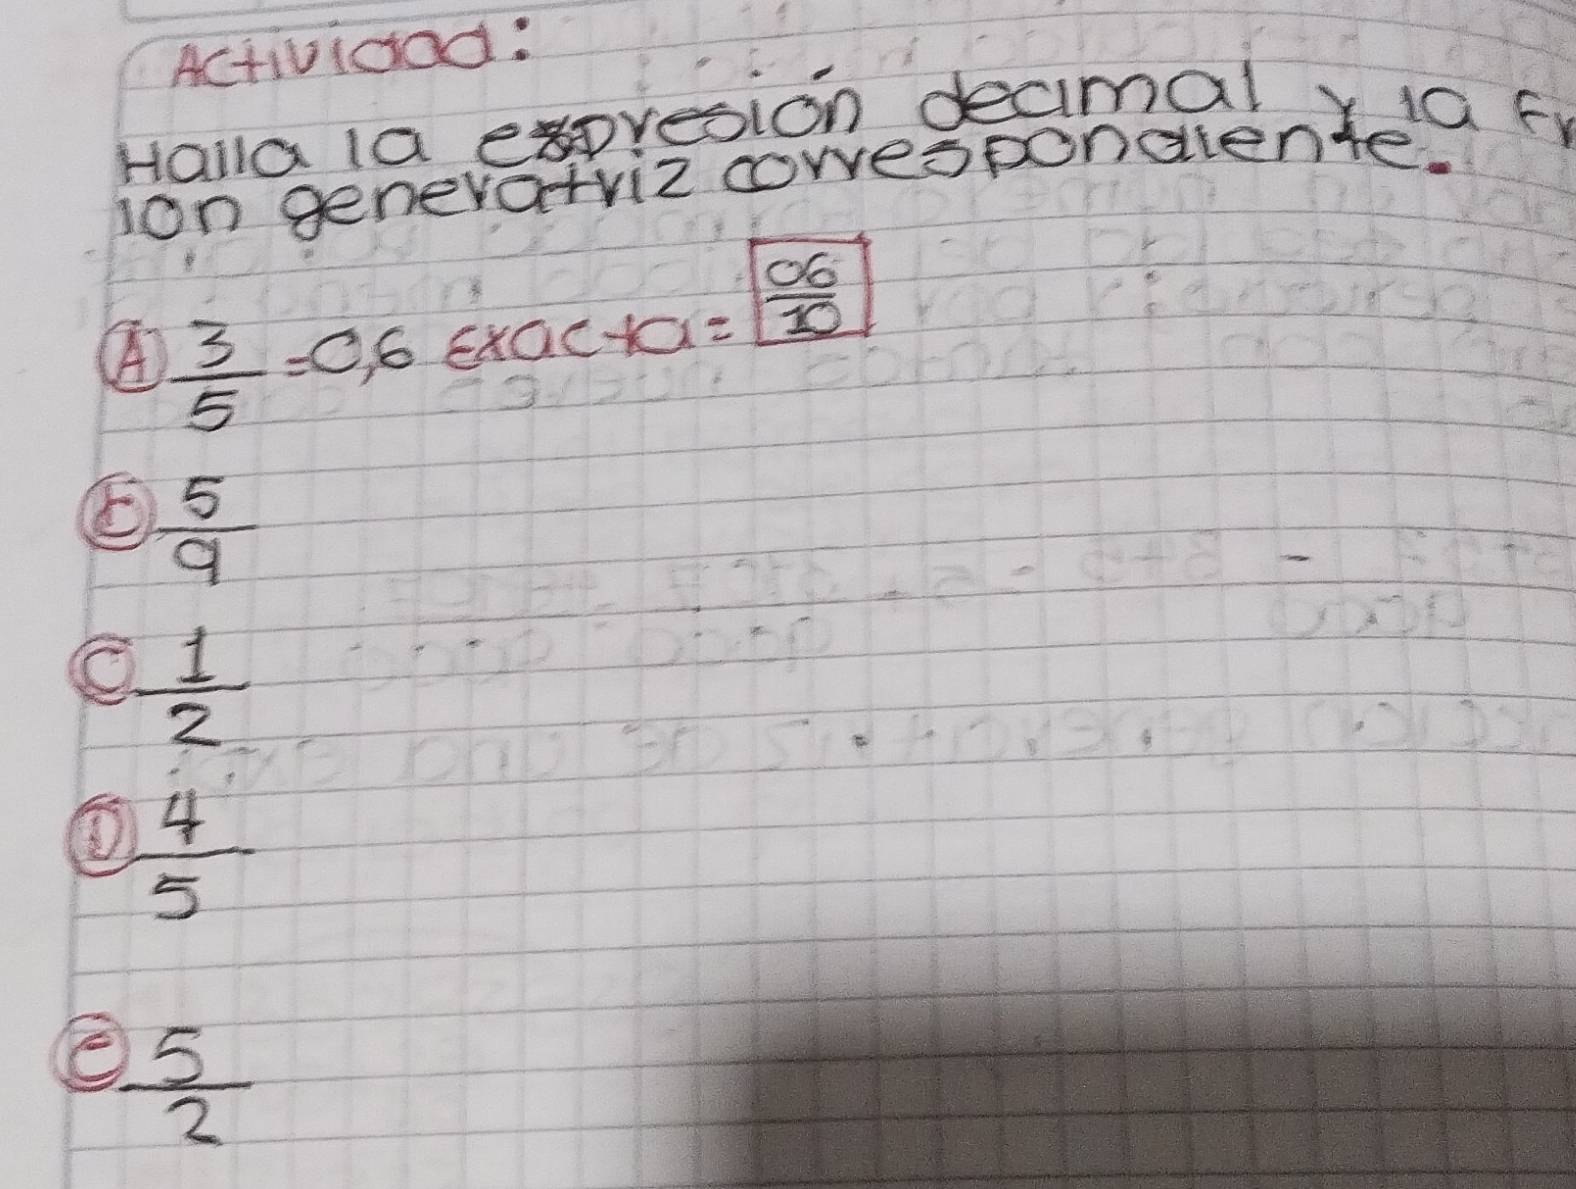 Actividad:
Halla la expresión decimal y la Fr
ion generatriz correspondiente.
A 3/5 = 0,6 Exacta = 06/10
b 5/9
C 1/2
D 4/5
e 5/2